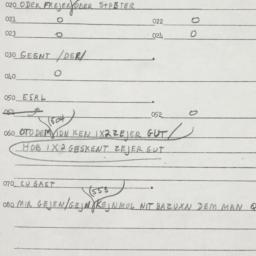 020 ODER FREJER/ODER STPETER
021 O 022 O
023 O 024 O
030 GEENT/DER/
040 O
050 ESAL
052 O
(504)
060 OTO DEM/ION KEN 1X2 ZEJER GUT/
HOB 1X2 GESKENT ZEJER GUT
070 CU GAST
(553)
080 MIR GEJEN/GEJN/KEJNMOL NIT BAZUXN DEM MAN